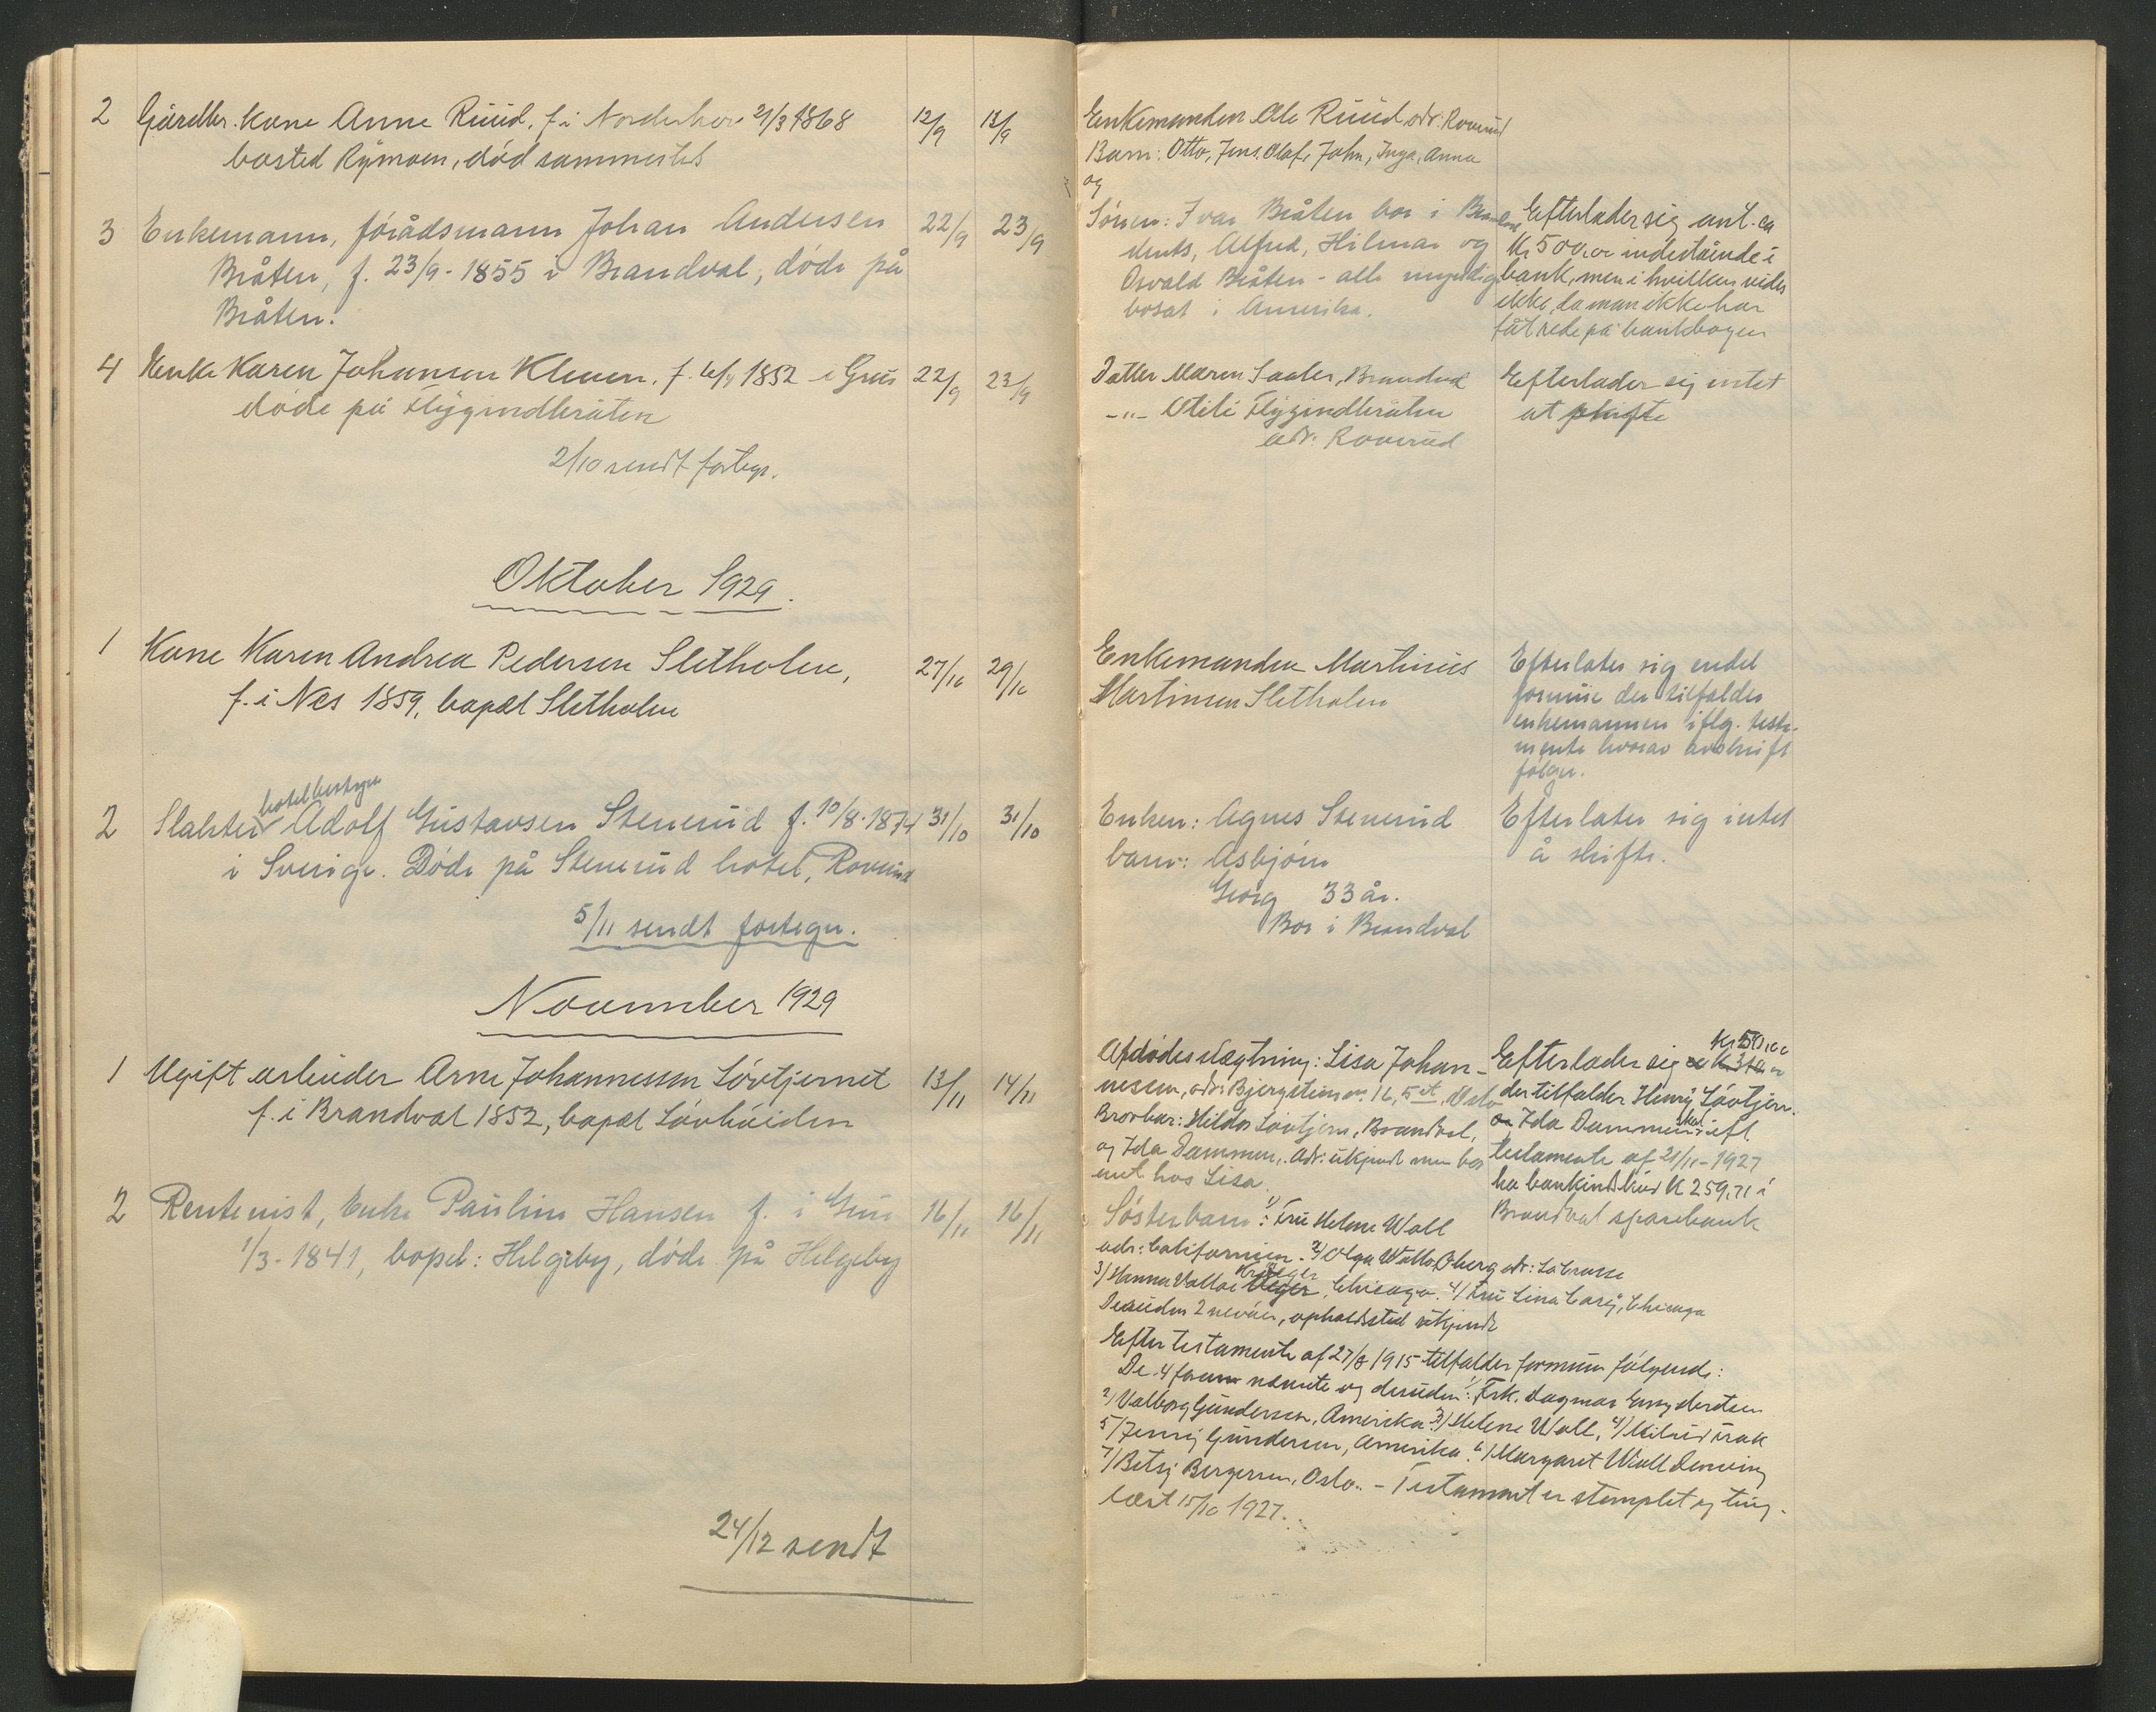 2 Gårdbr. kone Anne Ruud, f. i Norderhov 21/3 1868 12/9 13/9
bosted Rymoen, død sammested
3 Enkemann, förådsmann Johan Andersen 22/9 23/9
Bråten, f. 23/9-1855 i Brandval, døde på
Bråten.
4 Enke Karen Johansen Kleven, f. 1852 i Grue 22/9 23/9
døde på Flygindbråten
2/10 sendt fortegn.
Oktober 1929.
1 Kone Karen Andrea Pedersen Sletholen, 27/10 29/10
f. i Nes 1859, bopæl Sletholen
hotelbestyrer
2 Slakter Adolf Gustavsen Stenerud f. 10/8-1874 31/10 31/10
i Sverige. Døde på Stenerud hotel, Roverud
5/11 sendt fortegn.
November 1929
1 Ugift arbeider Arne Johannessen Lövtjernet 13/11 14/11
f. i Brandval 1852, bopæl Lövhöiden
2 Rentenist, Enke Pauline Hansen f. i Grue 16/11 16/11
1/3-1841, bopel: Helgeby, døde på Helgeby
24/12 sendt
Enkemanden Ole Ruud adr: Roverud
Barn: Otto, Jens, Olaf, John, Inga, Anna
og
Sönen: Ivar Bråten bor i Brandval
dents, Alfred, Hilmar og
Osvald Bråten - alle myndige
bosat i Amerika.
Efterlader sig ant. ca
Kr 500,00 indestående i
bank, men i hvilken vides
ikke, da man ikke har
fåt rede på bankbogen
Datter Maren Saaler, Brandval
-"- Otili Flygindbråten
adr: Roverud
Efterlader sig intet
at skifte
Enkemanden Martinius
Martinsen Sletholen
Efterlater sig endel
formue der tilfalder
enkemannen iflg. testa-
mente hvorav avskrift
følger.
Enken: Agnes Stenerud
barn: Asbjörn
Georg 33 år.
Bor i Brandval
Efterlater sig intet
å skifte.
Afdödes slægtning: Lisa Johan-
nessen, adr: Bjergsteinen 16, 5 et, Oslo
Brorbar: Hilda Lövtjern, Brandval,
og Ida Dammen, Adr: ukjendt men bor
emt hos Lisa.
Kr 50,00
Efterlader sig
der tilfalder Henry Lövtjern.
og Ida Dammen efl.
testamente af 21/11-1927
ha bankindskud K 259,71 i
Brandval sparebank
Søsterbarn: 1/ Fru Helene Wall
adr: Californien. 2/ Olga Walla Oberg adr: La Crosse
3/ Hanna Vallae Krüeger, Chicago. 4/ Fru Lina Carij, Chicago
Desuden 2 nevöer, opholdssted ukjendt
Efter testamente af 27/8 1915 tilfalder formuen følgende:
De 4 foran nævnte og desuden: 1/ Frk. Dagmar Engebretsen
2/ Valborg Gundersen, Amerika 3/ Helene Wall, 4/ Milrid
5/ Jenny Gundersen, Amerika. 6/ Margaret Wall Denving
7/ Betsy Bergersen, Oslo. - Testament er stemplet og ting-
læst 15/10 1927.